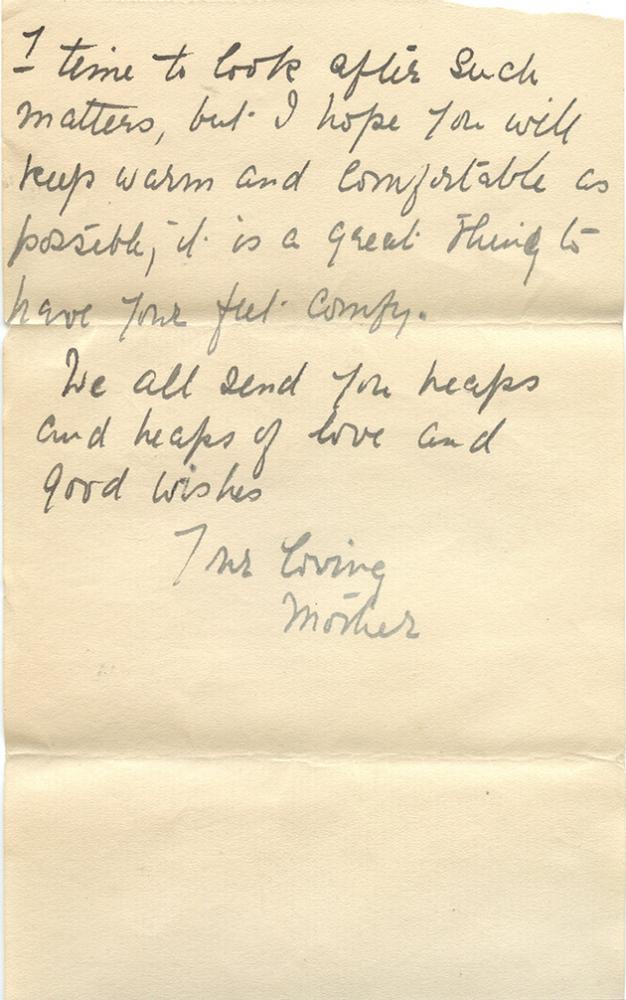 7
time to look after such
matters, but I hope you will
keep warm and comfortable as
possible, it is a great thing to
have your feet comfy.
We all send you heaps
and heaps of love and
good wishes
Your loving
Mother